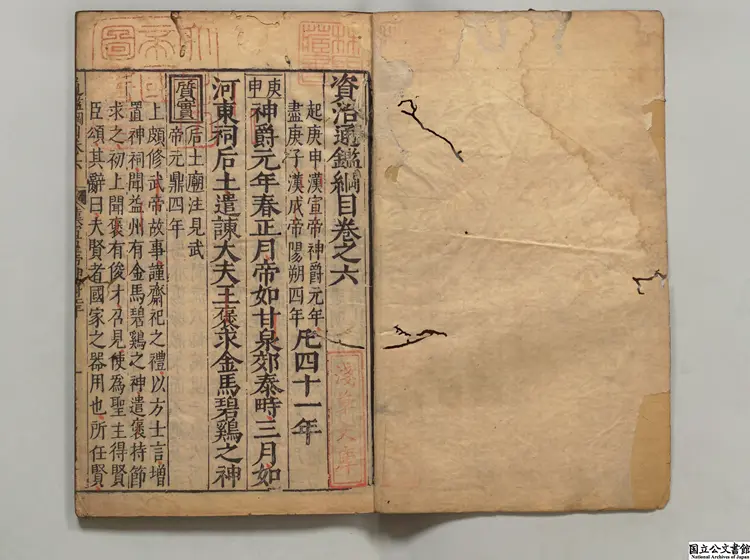 資治通鑑綱目卷之六
起庚申漢宣帝神爵元年
盡庚子漢成帝陽朔四年
凡四十一年
庚申
神爵元年春正月帝如甘泉郊泰畤三月如
河東祠后土遣諫大夫王褒求金馬碧鷄之神
質實
后土廟注見武
帝元鼎四年
上頗修武帝故事謹齋祀之禮以方士言增
置神祠聞益州有金馬碧鷄之神遣褒持節
求之初上聞褒有俊才召見使為聖主得賢
臣頌其辭曰夫賢者國家之器用也所任賢
淺草文庫
国立公文書館
National Archives of Japan